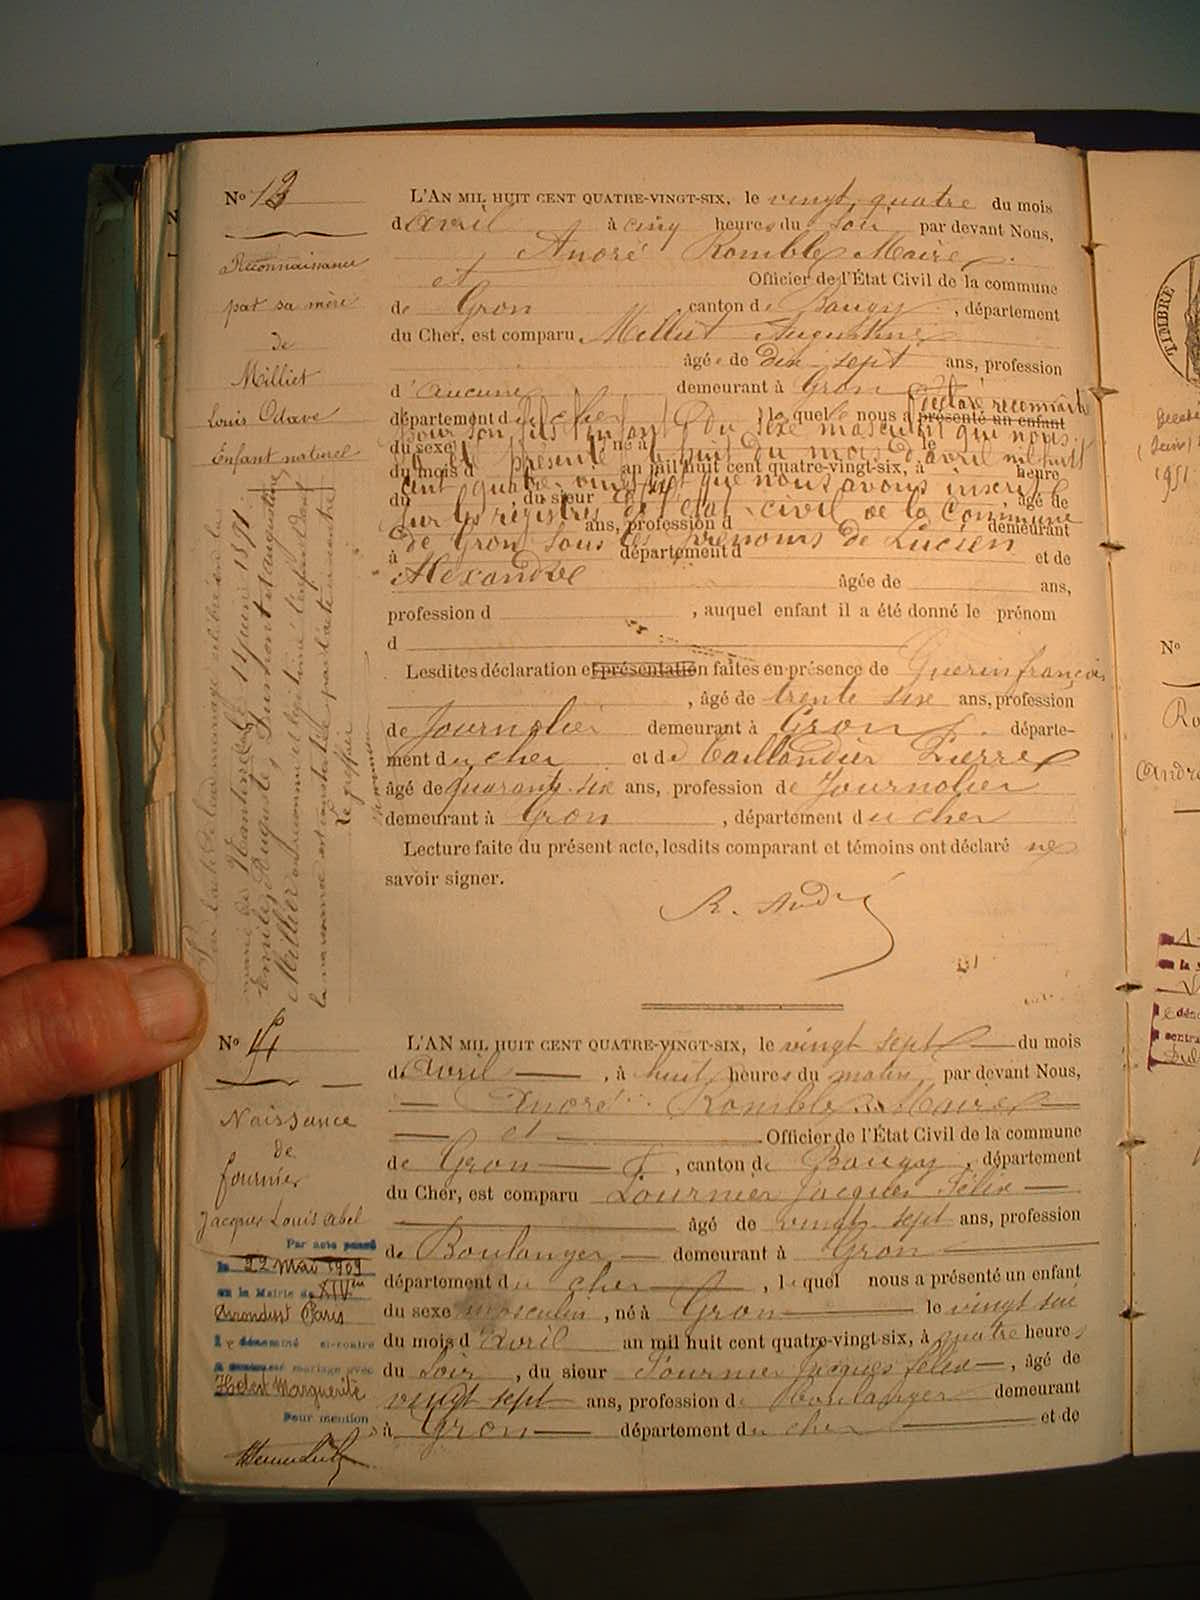 N° 13
Reconnaissance
par sa mère
de
Milliet
Louis Octave
Enfant naturel
mairie de 11 juin 1891
Emile Auguste, Dumont et augustine
Milliet ont reconnu et légitimé l'enfant dont
la naissance est constatée par l'acte ci-contre
Le greffier
L'AN MIL HUIT CENT QUATRE-VINGT-SIX, le vingt quatre du mois
d'avril à cinq heures du soir par devant Nous,
André Romble Maire
et Officier de l'État Civil de la commune
de Gron, canton de Baugy, département
du Cher, est comparu Milliet Augustine
âgée de dix sept ans, profession
d'aucune demeurant à Gron
département du cher laquelle nous a présenté un enfant déclaré reconnaitre
pour son fils l'enfant du sexe masculin qui nous
du sexe né à le
a été présenté le huit du mois d'avril mil huit
du mois d an mil huit cent quatre-vingt-six, à heure
cent quatre vingt six que nous avons inscrit
du du sieur âgé de
sur les registres de l'état civil de la Commune
ans, profession d demeurant
de Gron sous les prénoms de Lucien
à département d et de
Alexandre âgée de ans,
profession d , auquel enfant il a été donné le prénom
d
Lesdites déclaration et présentation faites en présence de Guerin françois
, âgé de trente six ans, profession
de Journalier demeurant à Gron départe-
ment du cher et de Taillandier Pierre
âgé de quarante six ans, profession de Journalier
demeurant à Gron , département du cher
Lecture faite du présent acte, lesdits comparant et témoins ont déclaré ne
savoir signer.
R. André
N° 14
Naissance
de
fournier
Jacques Louis abel
Par acte passé
le 22 Mai 1909
en la Mairie du XIVme
Arrondisst Paris
l y dénommé ci-contre
a contracté mariage avec
Marguerite
Pour mention
L'AN MIL HUIT CENT QUATRE-VINGT-SIX, le vingt sept du mois
d'Avril , à huit heures du matin par devant Nous,
André Romble Maire
et Officier de l'État Civil de la commune
de Gron , canton de Baugy , département
du Cher, est comparu Fournier Jacques Félix
âgé de vingt sept ans, profession
de Boulanger demeurant à Gron
département du cher , lequel nous a présenté un enfant
du sexe masculin , né à Gron le vingt six
du mois d'Avril an mil huit cent quatre-vingt-six, à quatre heures
du Soir , du sieur Fournier Jacques Félix , âgé de
vingt sept ans, profession de boulanger demeurant
à Gron département du cher et de
TIMBRE
1951
N°